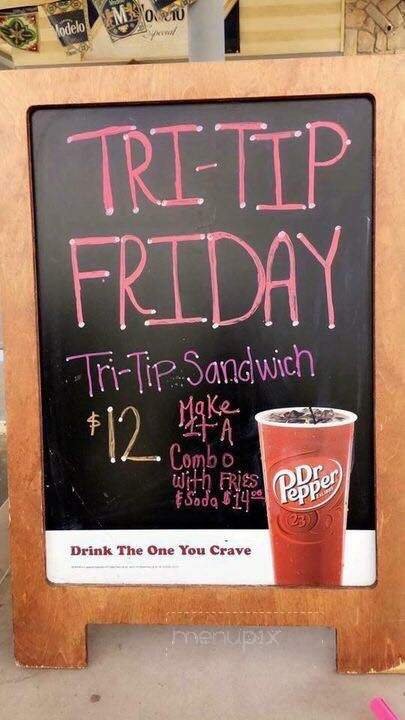 Modelo
Modelo
Especial
TRI-TIP
FRIDAY
Tri-Tip Sandwich
$12
Make
It A
Combo
With Fries
& Soda $14.00
Dr
Pepper
23
Drink The One You Crave
menupix